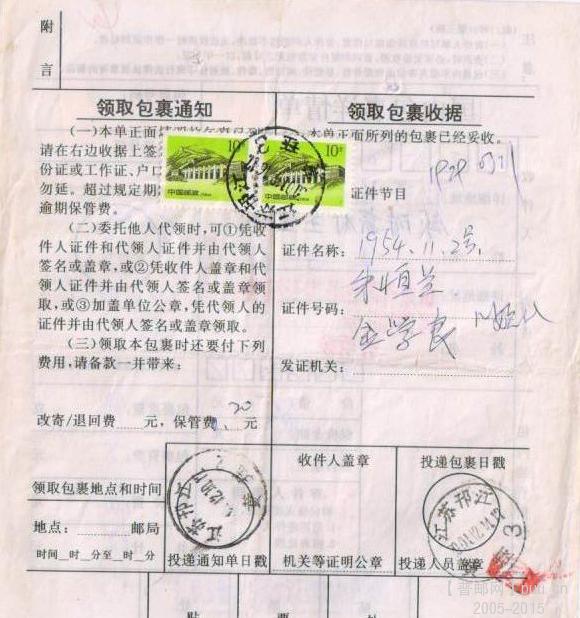 附
言
领取包裹通知
(一)本单正面
请在右边收据上签
份证或工作证、户口
勿延。超过规定期
逾期保管费。
(二)委托他人代领时,可①凭收
件人证件和代领人证件并由代领人
签名或盖章,或②凭收件人盖章和代
领人证件并由代领人签名或盖章领
取,或③加盖单位公章,凭代领人的
证件并由代领人签名或盖章领取。
(三)领取本包裹时还要付下列
费用,请备款一并带来:
改寄/退回费 元,保管费 .20 元
领取包裹收据
本单正面所列的包裹已经妥收。
证件节目
证件名称:1954.11.2号.
朱恒兰
证件号码:
金学良
发证机关:
10分
中国邮政
10分
中国邮政
江苏邗江
3
领取包裹地点和时间
地点: 邮局
时间 时 分至 时 分
江苏邗江
投递通知单日戳
收件人盖章
机关等证明公章
投递包裹日戳
江苏邗江
3
投递人员盖章
贴
票
处
2005-2015